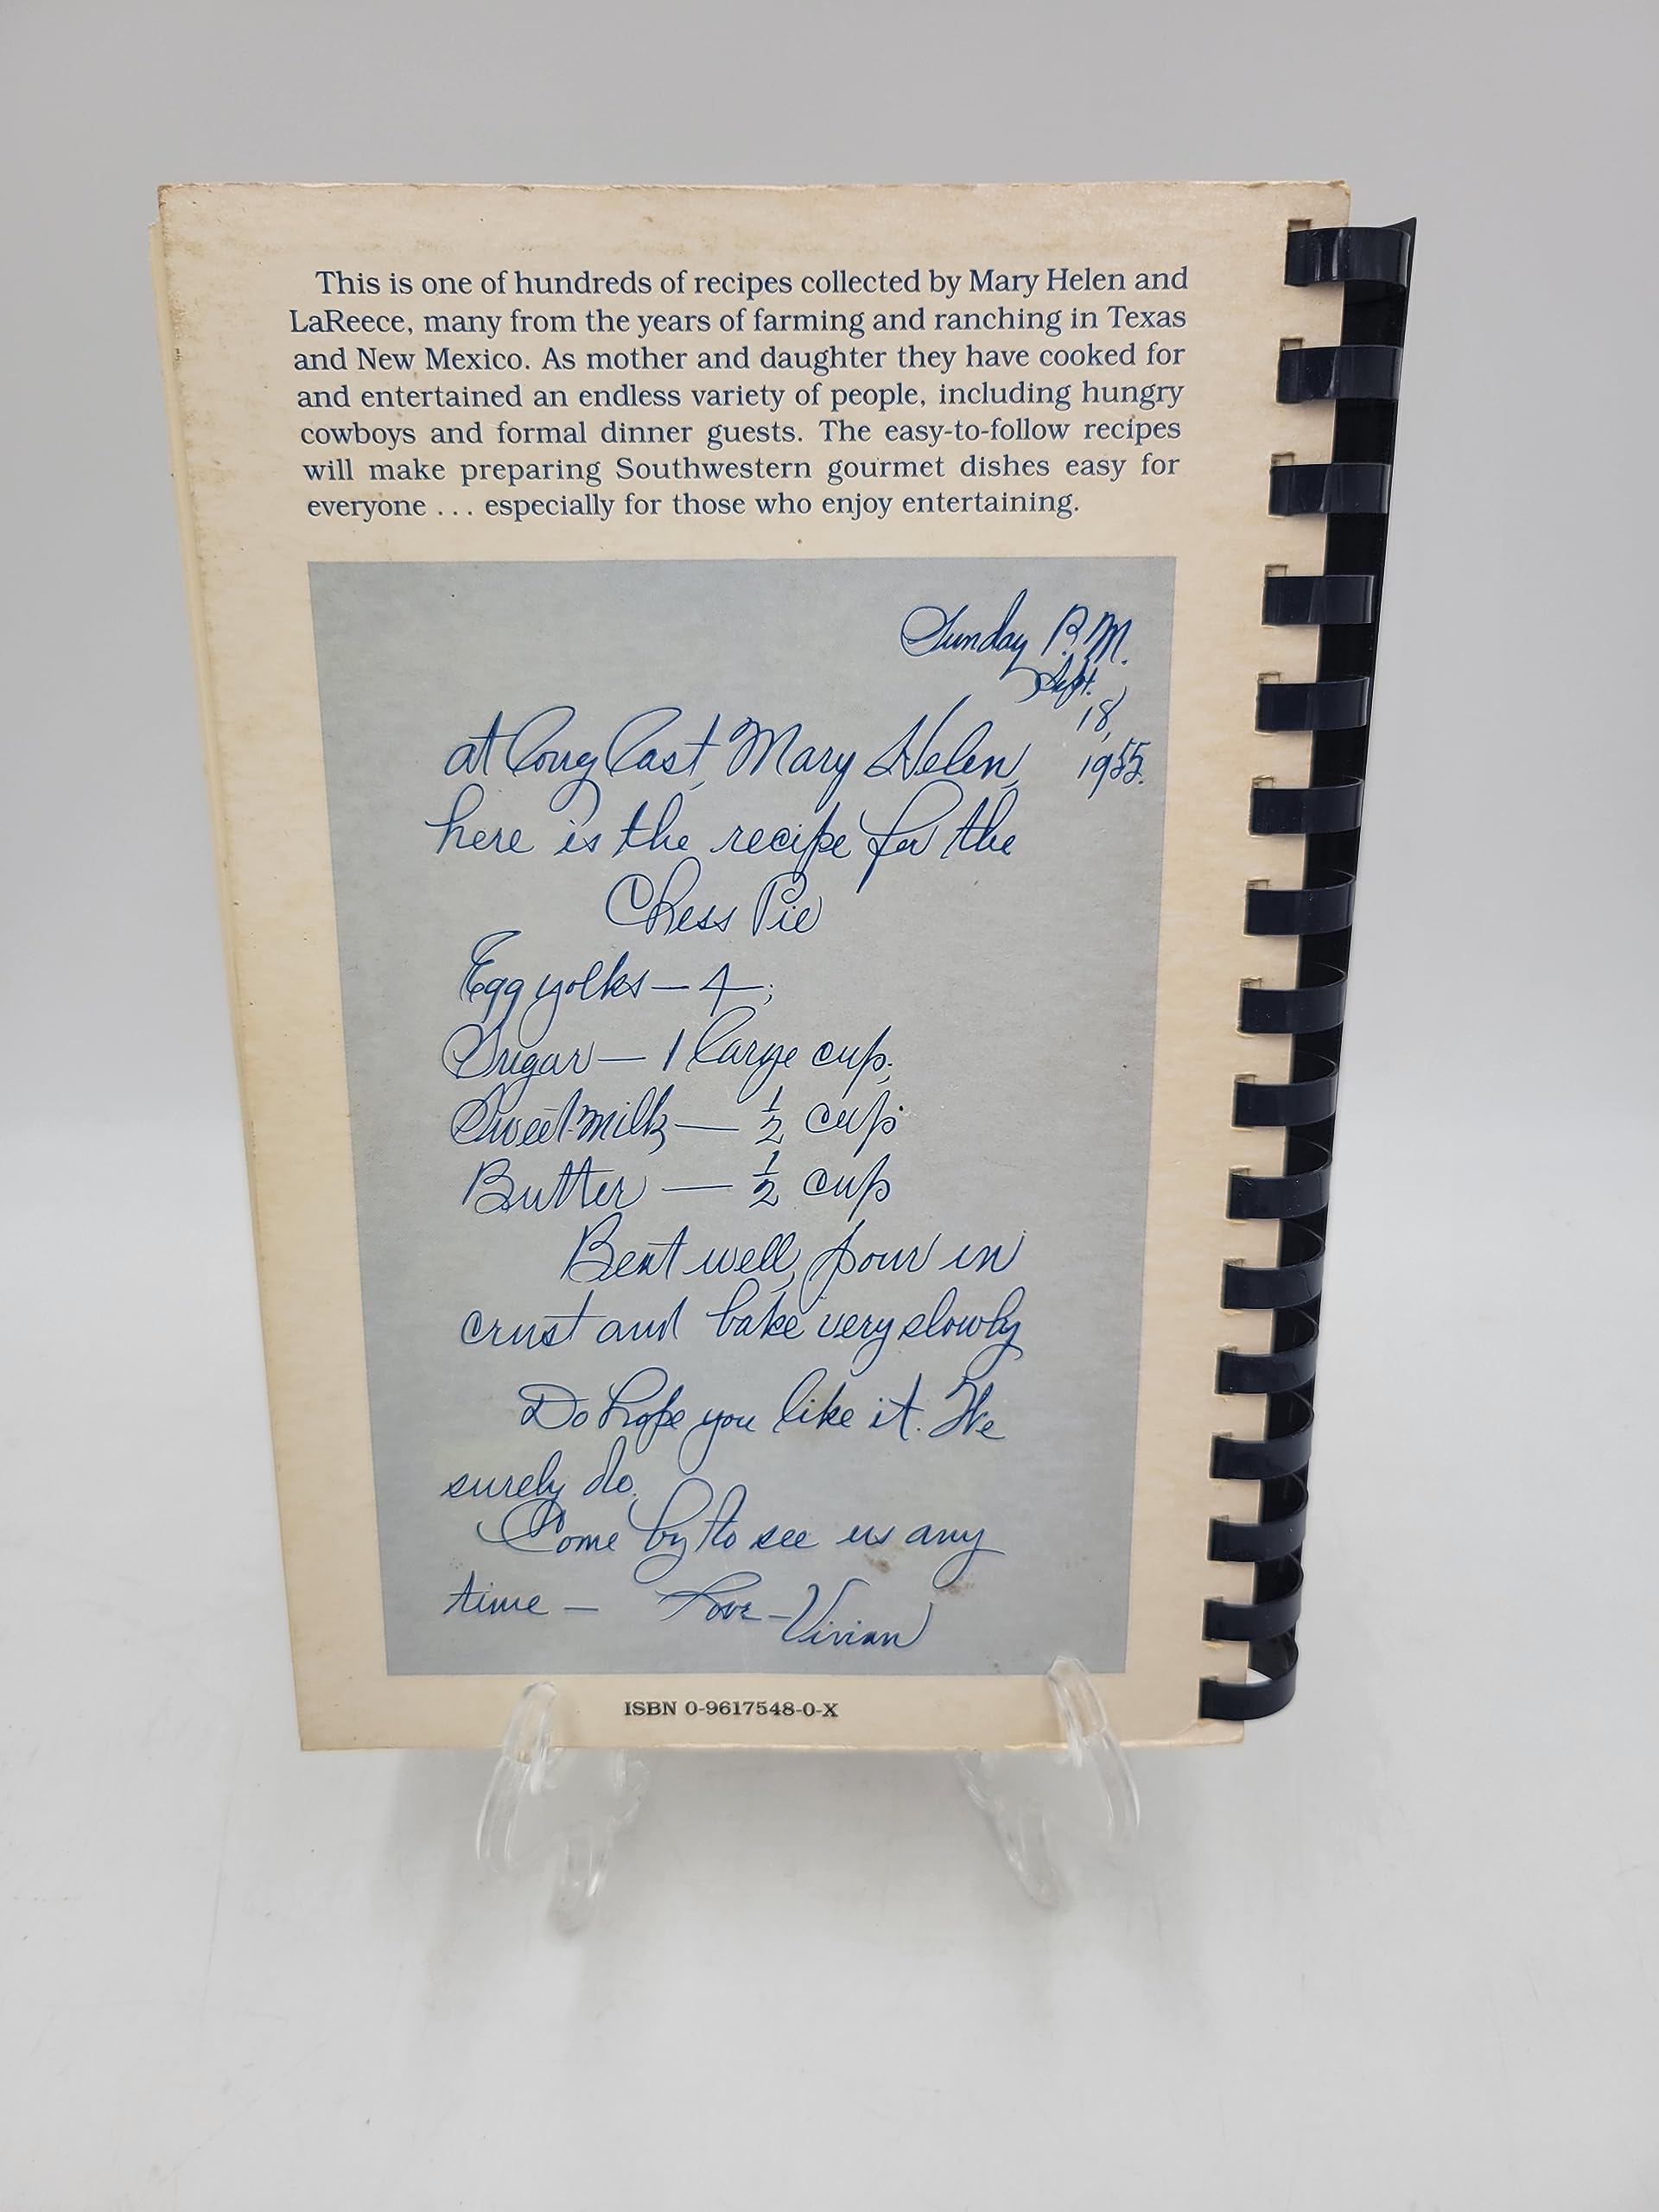 This is one of hundreds of recipes collected by Mary Helen and
LaReece, many from the years of farming and ranching in Texas
and New Mexico. As mother and daughter they have cooked for
and entertained an endless variety of people, including hungry
cowboys and formal dinner guests. The easy-to-follow recipes
will make preparing Southwestern gourmet dishes easy for
everyone . . . especially for those who enjoy entertaining.
Sunday P.M.
Sept.
18,
1955.
at long last, Mary Helen,
here is the recipe for the
Chess Pie
Egg yolks — 4;
Sugar — 1 large cup;
Sweet milk — 1/2 cup
Butter — 1/2 cup
Beat well, pour in
crust and bake very slowly
Do hope you like it. We
surely do.
Come by to see us any
time — Love - Vivian
ISBN 0-9617548-0-X